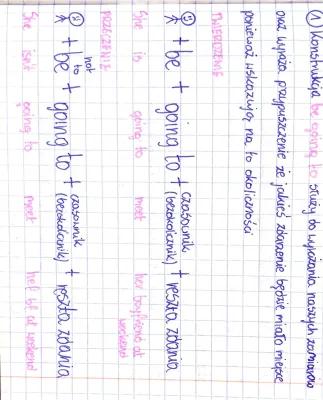 ① Konstrukcja be going to służy do wyrażania naszych zamiarów
oraz wyraża przypuszczenie że jakieś zdarzenie będzie miało miejsce
ponieważ wskazują na to okoliczności
TWIERDZENIE
+ be + going to + czasownik (bezokolicznik) + reszta zdania
She is going to meet her boyfriend at weekend
PRZECZENIE
not to
+ be + going to + czasownik (bezokolicznik) + reszta zdania
She isn't going to meet her bf at weekend